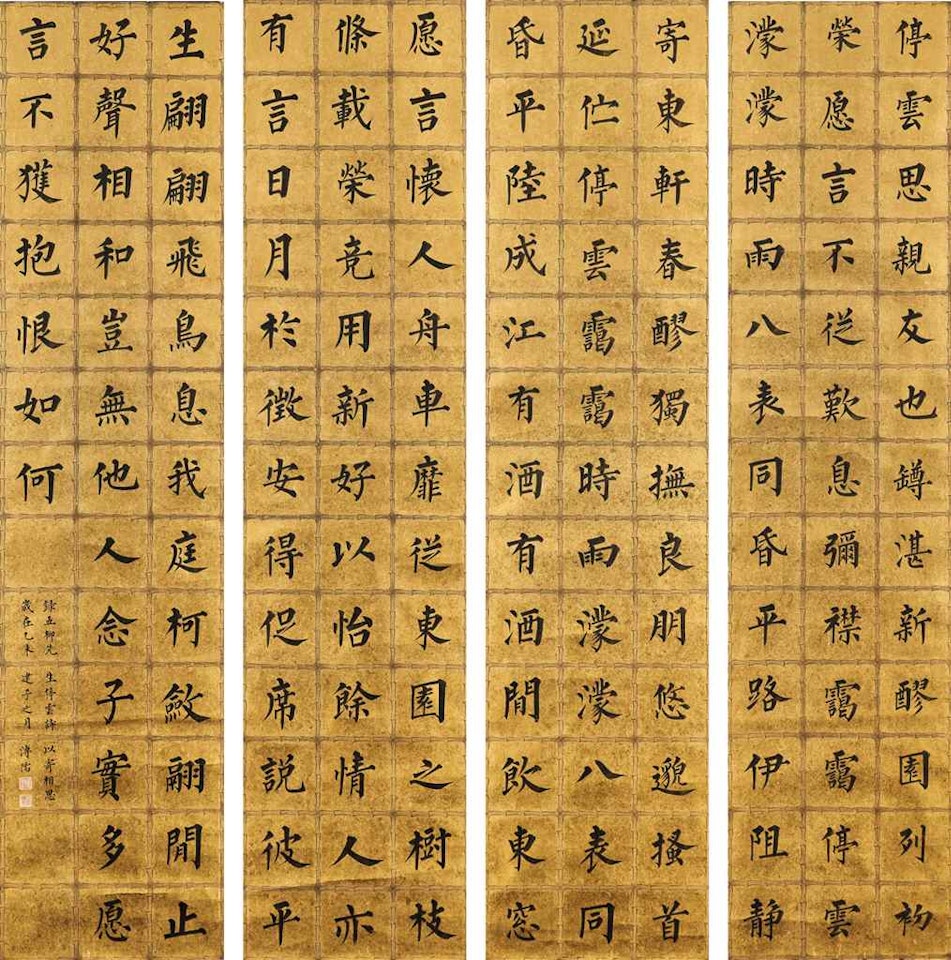 停雲思親友也罇湛新醪園列初
榮愿言不從歎息彌襟靄靄停雲
濛濛時雨八表同昏平路伊阻静
寄東軒春醪獨撫良朋悠邈搔首
延伫停雲靄靄時雨濛濛八表同
昏平陸成江有酒有酒閒飲東窓
愿言懷人舟車靡從東園之樹枝
條載榮竞用新好以怡餘情人亦
有言日月於徵安得促席説彼平
生翩翩飛鳥息我庭柯斂翮閒止
好聲相和豈無他人念子實多愿
言不獲抱恨如何
錄五柳先生停雲詩以寄相思
歲在乙未建子之月溥儒